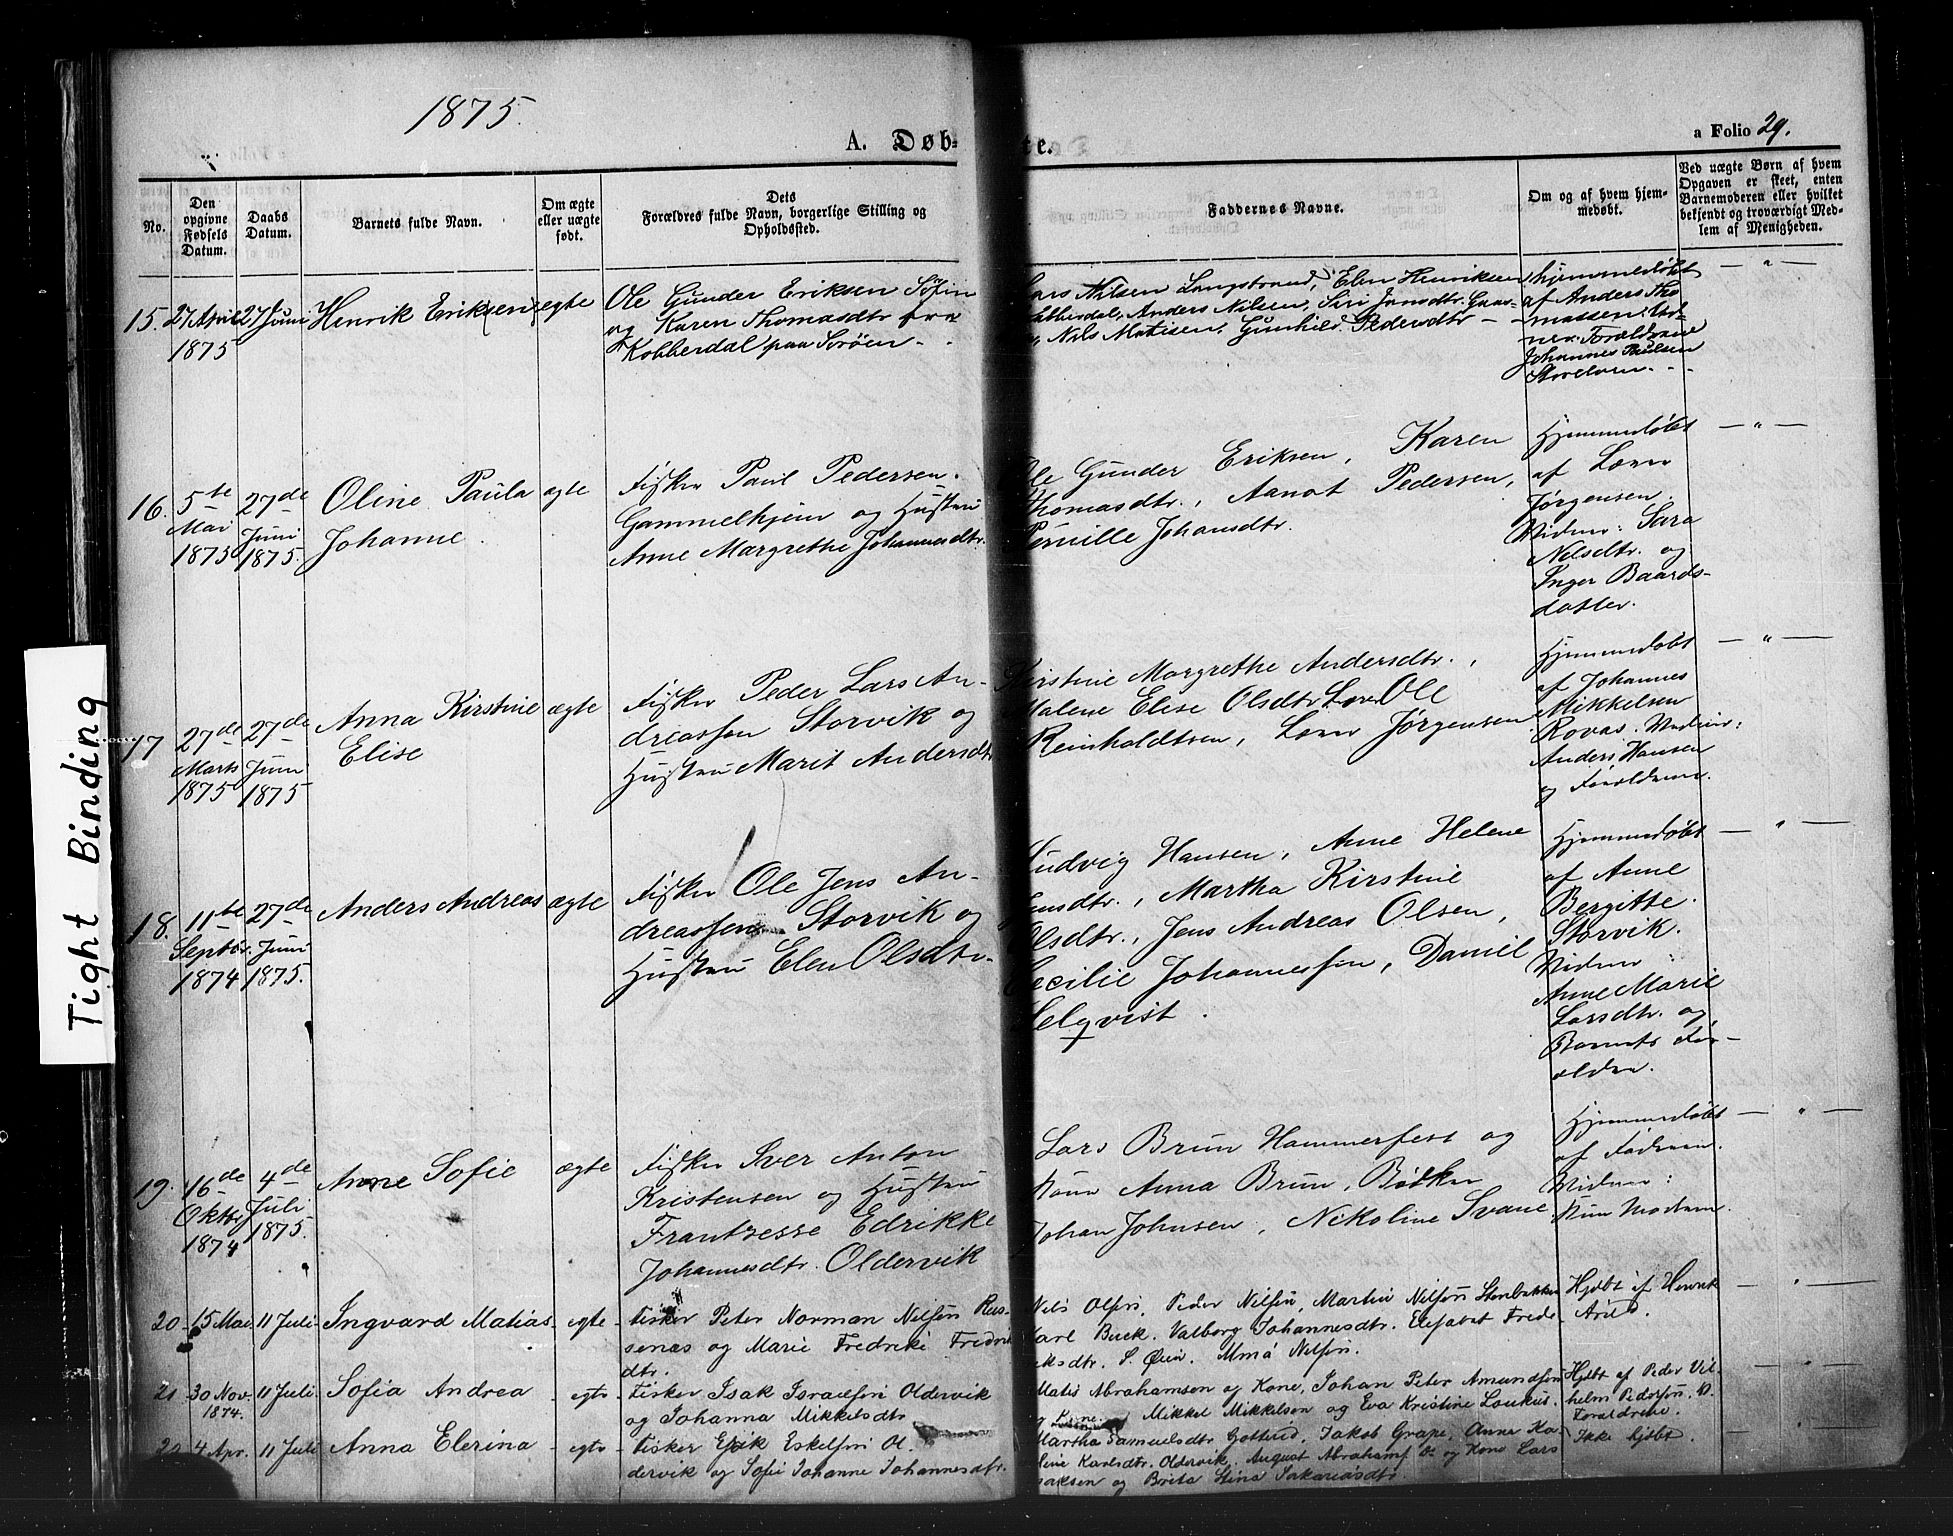 1875.
A. Døb-
te.
a Folio 29.
No.
Den opgivne Fødsels Datum.
Daabs Datum.
Barnets fulde Navn.
Om ægte eller uægte født.
Dets Forældres fulde Navn, borgerlige Stilling og Opholdsted.
Faddernes Navne.
Om og af hvem hjem-
medøbt.
Ved uægte Børn af hvem
Opgaven er skeet, enten
Barnemoderen eller hvilket
bekjendt og troværdigt Med-
lem af Menigheden.
15. 27 April 1875
27 Juni
Henrik Eriksen
egte
Ole Gunder Eriksen
og Karen Thomasdtr fra
Kobberdal paa Sørøen
Lars Nilsen Langstrand, Elen Henriksen
Kobberdal, Anders Nilsen, Siri Jansdtr.
Nils Matisen, Gunhild Pedersdtr
hjemmedøbt
af Anders Tho-
massen.
Forældrene
Johannes Paulsen
— " —
16. 5te Mai 1875
27de Juni 1875.
Oline Paula
Johanne.
egte
Fisker Paul Pedersen
Gammelhjem og Hustru
Anne Margrethe Johannesdtr.
Ole Gunder Eriksen, Karen
Thomasdtr., Aanot Pedersen,
Pernille Johansdtr.
Hjemmedøbt
af Lars
Jørgensen.
Vidner: Sara
Nelsdtr. og
Inger Baards-
datter.
— " —
17 27de Marts 1875
27de Juni 1875
Anna Kirstine
Elise
ægte
Fisker Peder Lars An-
dreassen Storvik og
Hustru Marit Andersdtr
Kirstine Margrethe Andersdtr.,
Malene Elise Olsdtr Ole
Reinholdtsen, Lars Jørgensen
Hjemmedøbt
af Johannes
Mikkelsen
Rovas. Vidner:
Anders Hansen
og Forældrene.
— " —
18. 11te Septbr. 1874
27de Juni 1875.
Anders Andreas
ægte
Fisker Ole Jens An-
dreassen Storvik og
Hustru Elen Olsdtr.
Ludvig Hansen, Anne Helene
Jensdtr., Martha Kirstine
Olsdtr., Jens Andreas Olsen,
Cecilie Johannessen, Daniel
Helqvist.
Hjemmedøbt
af Anne
Bergitte
Storvik.
Vidner:
Anne Marie
Larsdtr. og
Barnets For-
ældre.
— " —
19. 16de Oktbr 1874
4de Juli 1875.
Anne Sofie
ægte
Fisker Iver Anton
Kristensen og Hustru
Frantzesse Edrikke
Johannesdtr. Oldervik
Lars Brun Hammerfest og
Kone Anna Brun, Bødker
Johan Johnsen, Nikoline Svane
Hjemmedøbt
af Faderen.
Vidner:
Kun Moderen.
— " —
20 15 Mai
11 Juli
Ingvard Matias
egte
Fisker Peter Norman Nilsen Rus-
senes og Marie Fredrike Fredrik
dtr.
Nels Olsen, Peder Nilsen, Martin Nilsen Stenbakken
Karl Buck. Valborg Johannesdtr. Elisabet Frede-
riksdtr. S. Øien. Nilsen.
Hjdbt af Henrik
Arild.
— " —
21 30 Nov. 1874.
11 Juli
Sofia Andrea
egte
Fisker Isak Israelsen Oldervik
og Johanna Mikkelsdtr
Matis Abrahamson og Kone, Johan Peter Amundsen
og Kone. Mikkel Mikkelsen og Eva Kristine Loukus.
Hjdbt af Peder Vil-
helm Pedersen. V.
Forældrene.
22 4 Apr.
11 Juli
Anna Elerina
egte
Fisker Erik Eskelsen Ol-
dervik og Sofie Johanne Johannesdtr.
Martha Samuelsdtr Jakob Grape, Anne Ka-
rline Karlsdtr. Oldervik. August Abrahams og Kone Lars
Isaksen og Brita Stina Sakariasdtr.
Ikke hjdbt.
Tight Binding